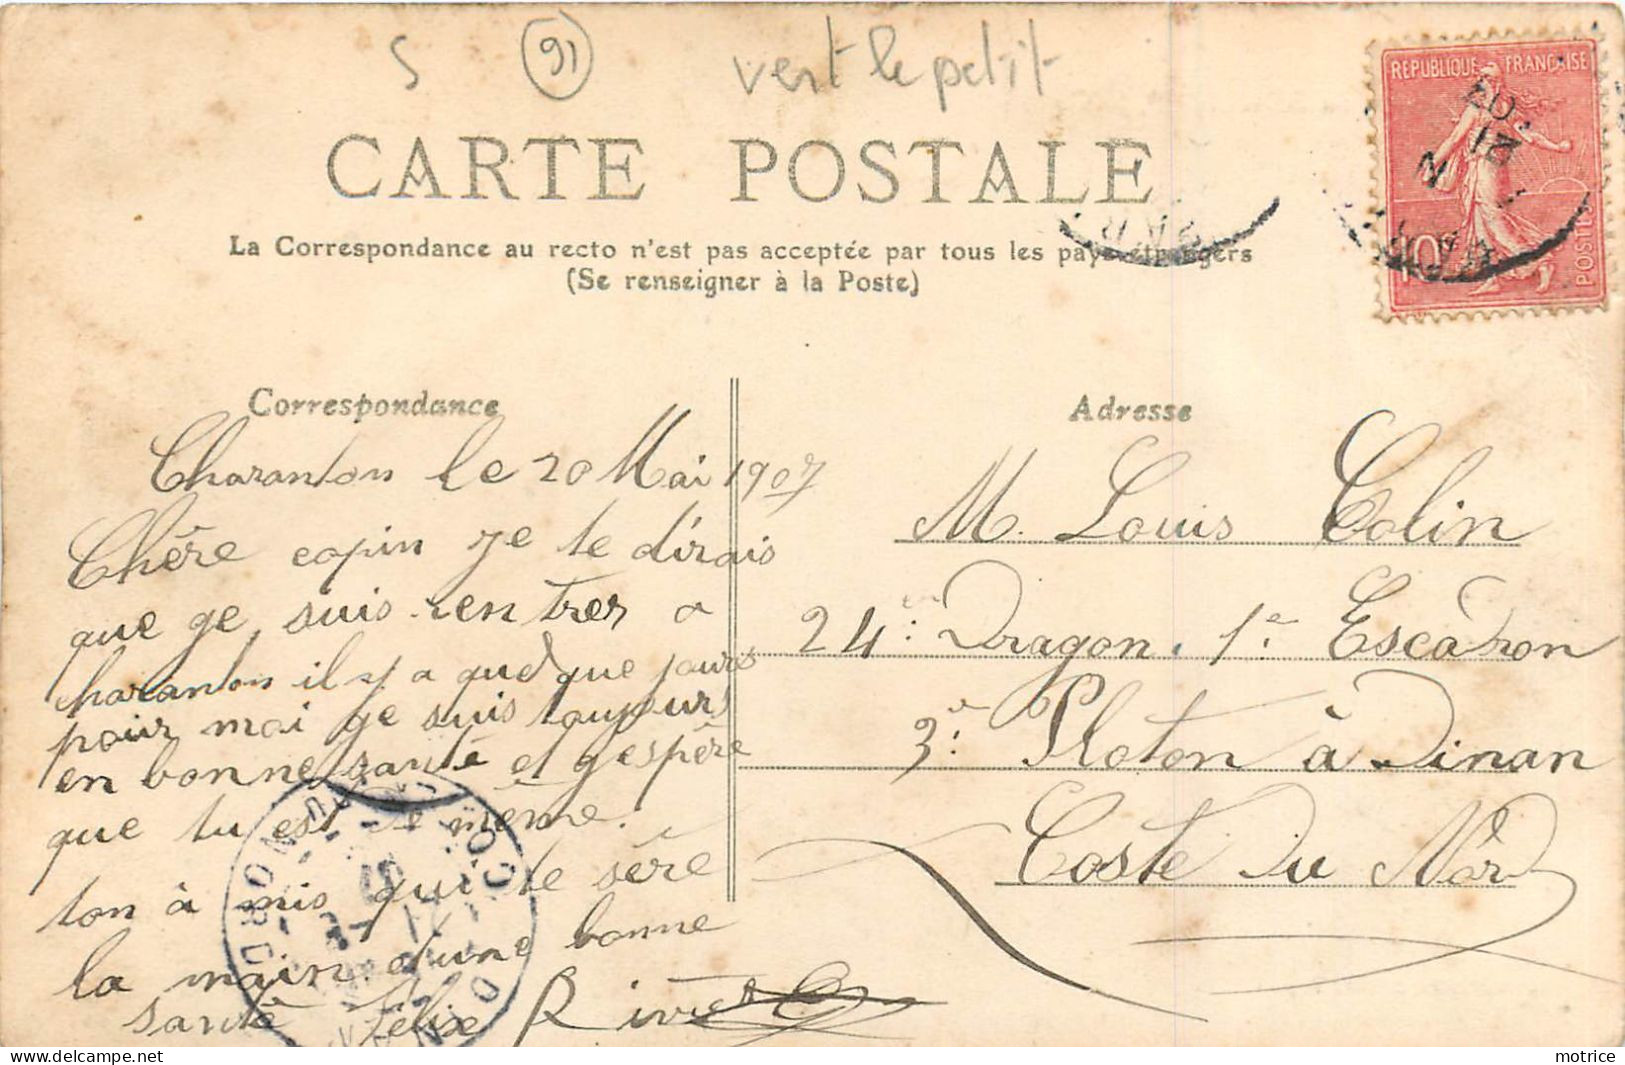 S (91) vert le petit
REPUBLIQUE FRANÇAISE
10
POSTES
CARTE POSTALE
La Correspondance au recto n'est pas acceptée par tous les pays étrangers
(Se renseigner à la Poste)
Correspondance
Charanton le 20 Mai 1907
Chère copin je te dirais
que ge suis rentrer a
haranton il y a quelque jours
pour moi ge suis toujours
en bonne santé et gespère
que tu est de meme.
ton à mis qui te sère
la main d'une bonne
santé Félix Rivet
Adresse
M. Louis Colin
24e Dragon. 1e Escàron
3e Ploton à Dinan
Coste Du Nord
COTES DU NORD
DINAN
motrice